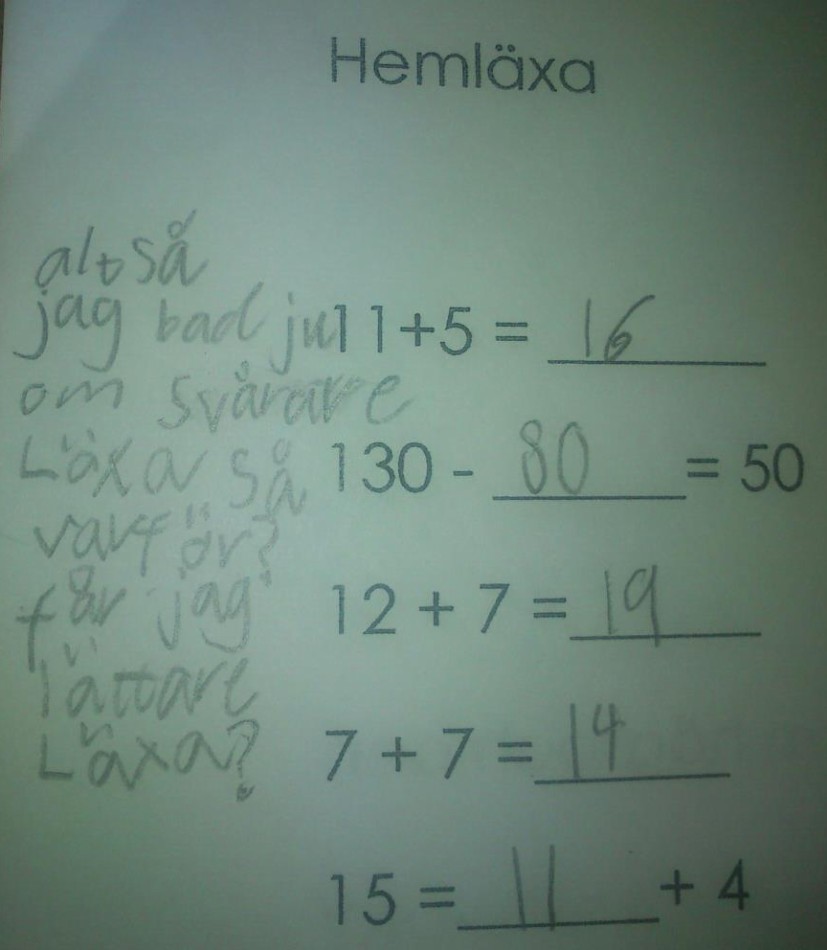 Hemläxa
altså
jag bad ju
om svårare
Läxa så
varför?
får jag
lättare
Läxa?
11+5 = 16
130 - 80 = 50
12 + 7 = 19
7 + 7 = 14
15 = 11 + 4